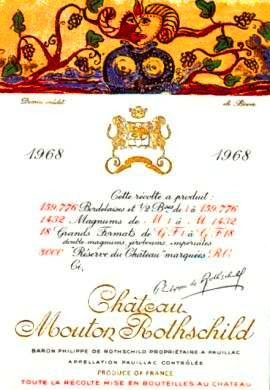 Dessin inédit de Bona
1968 1968
Cette récolte a produit :
159.776 Bordelaises et ½ Bses de 1 à 159.776
1432 Magnums de M 1 à M 1432
18 Grands Formats de G F 1 à G F 18
double magnums, jéroboams, impériales
3000 "Réserve du Château" marquées R.C.
Ci,
Philippe de Rothschild
Château
Mouton Rothschild
BARON PHILIPPE DE ROTHSCHILD PROPRIÉTAIRE A PAUILLAC
APPELLATION PAUILLAC CONTRÔLÉE
PRODUCE OF FRANCE
TOUTE LA RÉCOLTE MISE EN BOUTEILLES AU CHÂTEAU